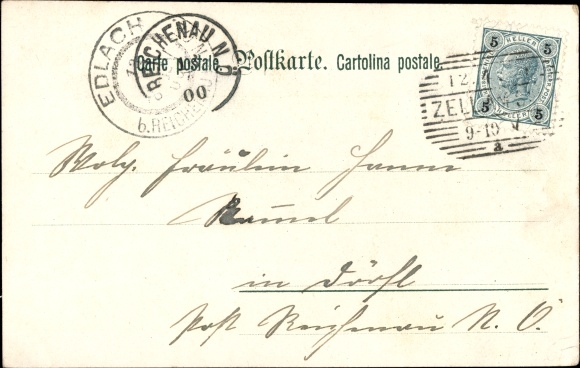 Carte postale. Postkarte. Cartolina postale.
EDLACH
b. REICHENAU
REICHENAU N.Ö.
00
5 HELLER 5
5 5
12.
ZELL
9-10 V
a
Wolg. Fräulein
in Dörfl
Post Reichenau N. Ö.